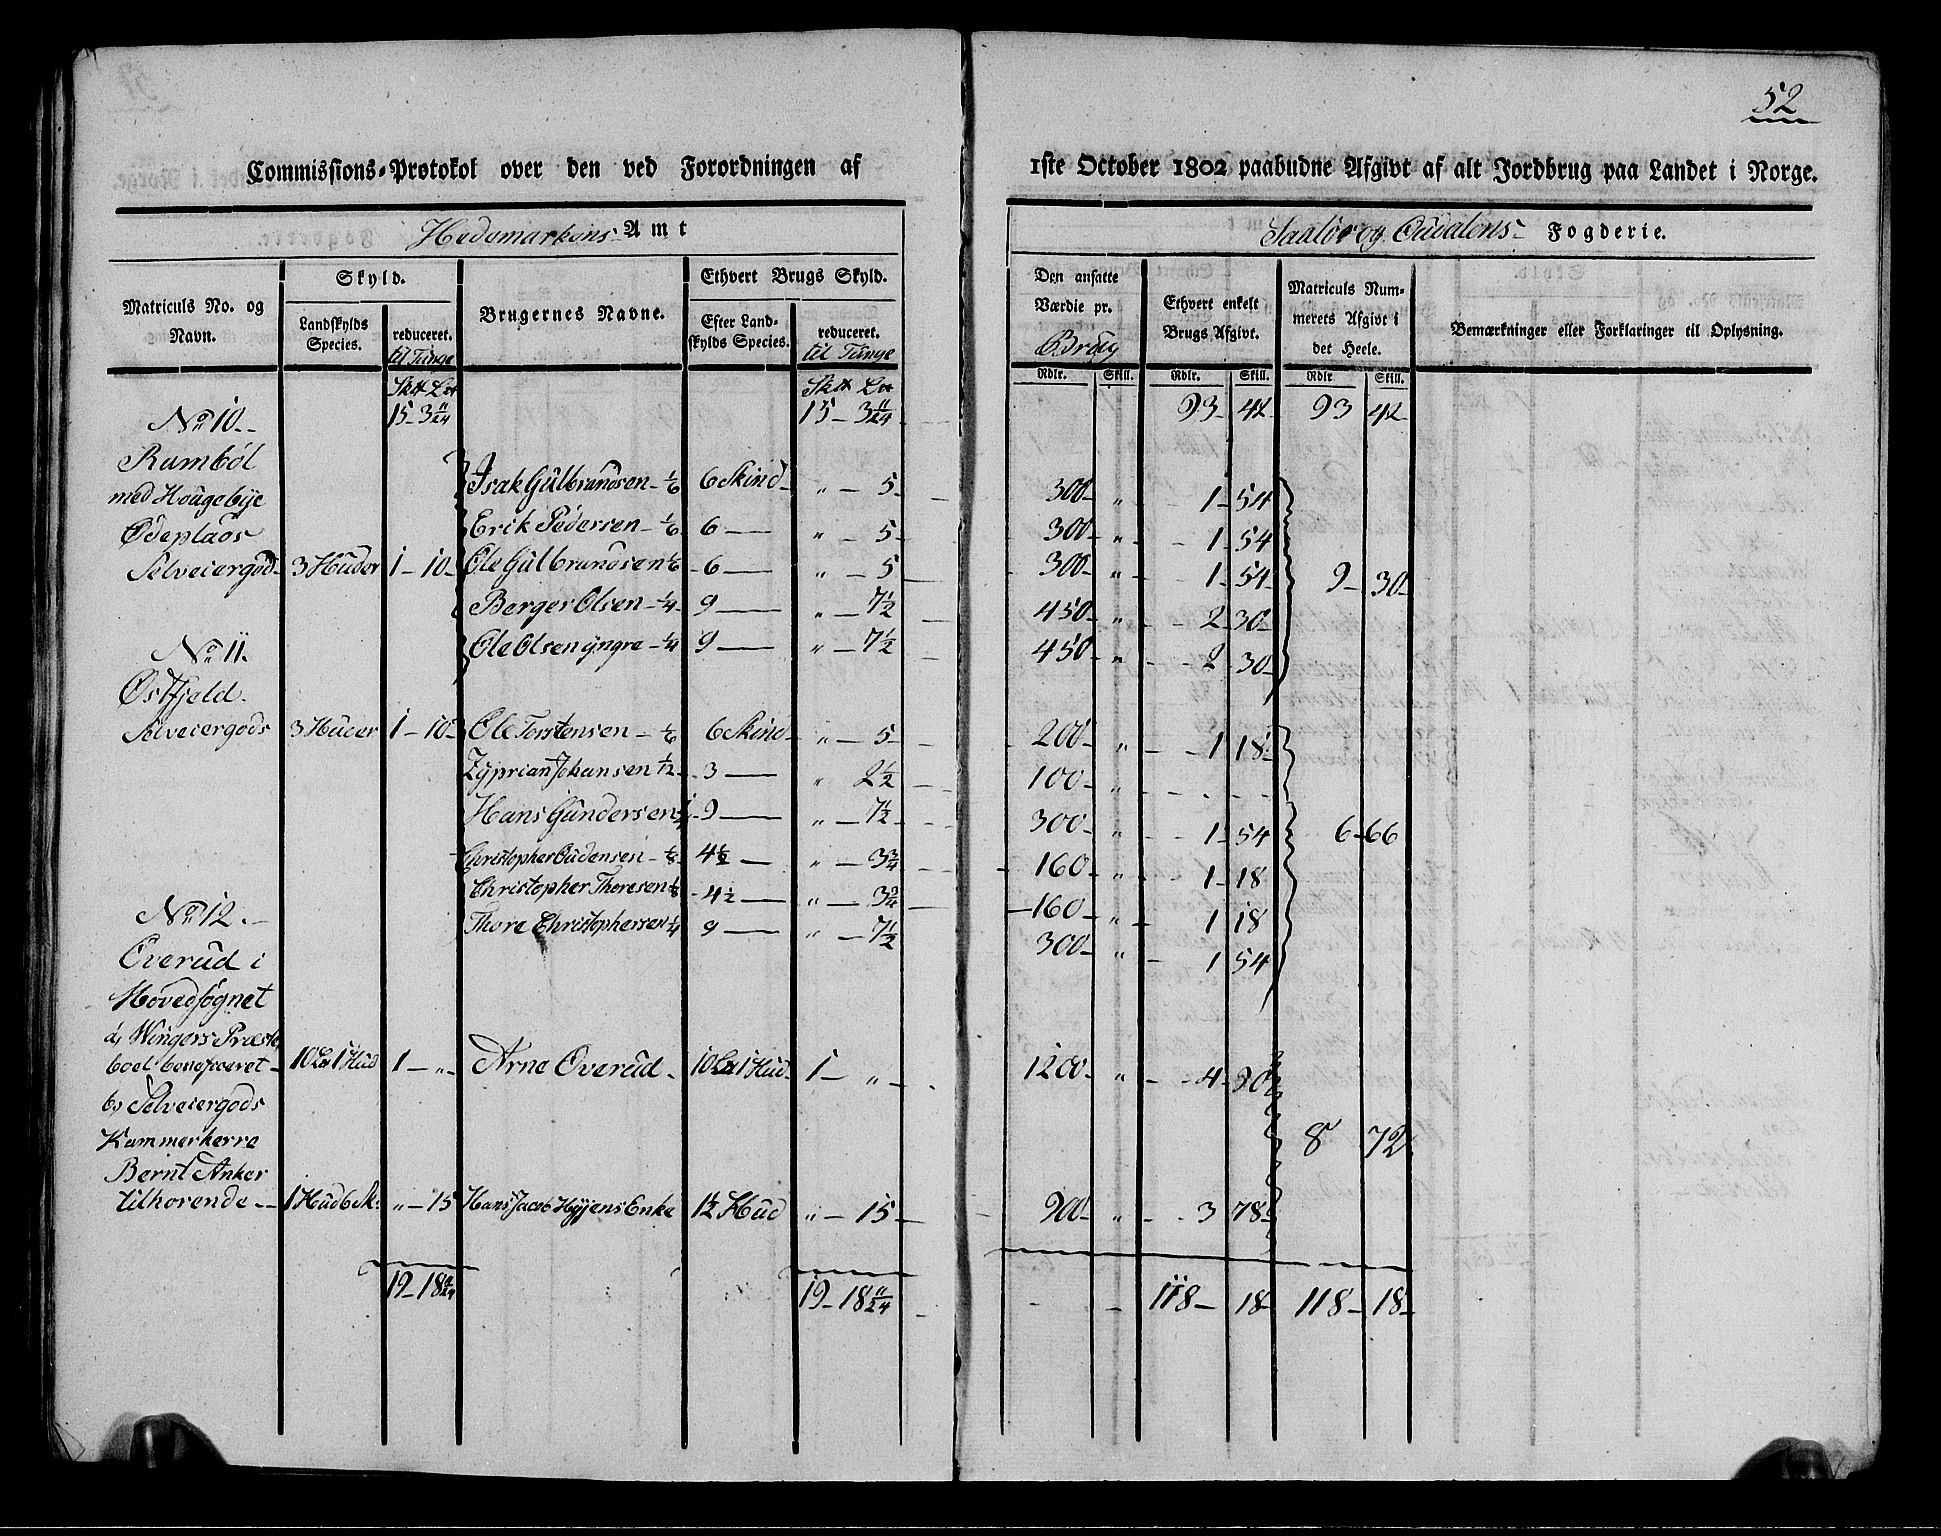 52
Commissions-Protokol over den ved Forordningen af 1ste October 1802 paabudne Afgivt af alt Jordbrug paa Landet i Norge.
Hedemarkens Amt
Saaløer og Oudalens Fogderie.
Matriculs No. og Navn.
Skyld.
Landskylds Species.
reduceret. til Tunge
Brugernes Navne.
Ethvert Brugs Skyld.
Efter Landskylds Species.
reduceret. til Tunge
Den ansatte Værdie pr. Brug
Ethvert enkelt Brugs Afgivt.
Matriculs Nummerets Afgivt i det Heele.
Bemærkninger eller Forklaringer til Oplysning.
Rdlr. Skill. Rdlr. Skill. Rdlr Skill.
15 - 3 11/24 15 - 3 11/24 93 - 42 93 42
No 10.
Rumböl
med Hougebye
Ødeplads
Selveiergod 3 Huder 1 - 10
Isak Gulbrandsen - 1/6 6 Skind " - 5 300 " 1 - 54
Erik Pedersen - 1/6 6 " - 5 300 " 1 - 54
Ole Gulbrandsen 1/6 6 " - 5 300 " 1 - 54 9 - 30
Berger Olsen - 1/4 9 " - 7 1/2 450 " 2 - 30
Ole Olsen yngre - 1/4 9 " - 7 1/2 450 " 2 - 30
No 11.
Østfjeld
Selveiergods 3 Huder 1 - 10
Ole Torstensen - 1/6 6 Skind " - 5 200 " 1 18
Zyprian Johansen 1/12 3 " 2 1/2 100
Hans Gundersen 1/4 9 " - 7 1/2 300 " 1 - 54 6 - 66
Christopher Oudensen - 1/8 4 1/2 " - 3 3/4 160 " 1 - 18
Christopher Thoresen 1/8 4 1/2 " - 3 3/4 160 " 1 18
Thore Christophersen 1/4 9 " - 7 1/2 300 " 1 54
No 12.
Overud i
Hovedsognet
a, Wingers Præste
boel beneficeret 10 1 Hud 1 - " Arne Overud 10 1 Hud 1 - " 1200 " 4 - 90
b, Selveiergods
Kammerherre 8 72
Bernt Anker
tilhørende 1 Hud 6 Sk: " - 15 Hans Jacob Høyens Enke 1 1/2 Hud " - 15 900 " 3 78
19 - 18 11/24 19 - 18 11/24 118 - 18 118 - 18